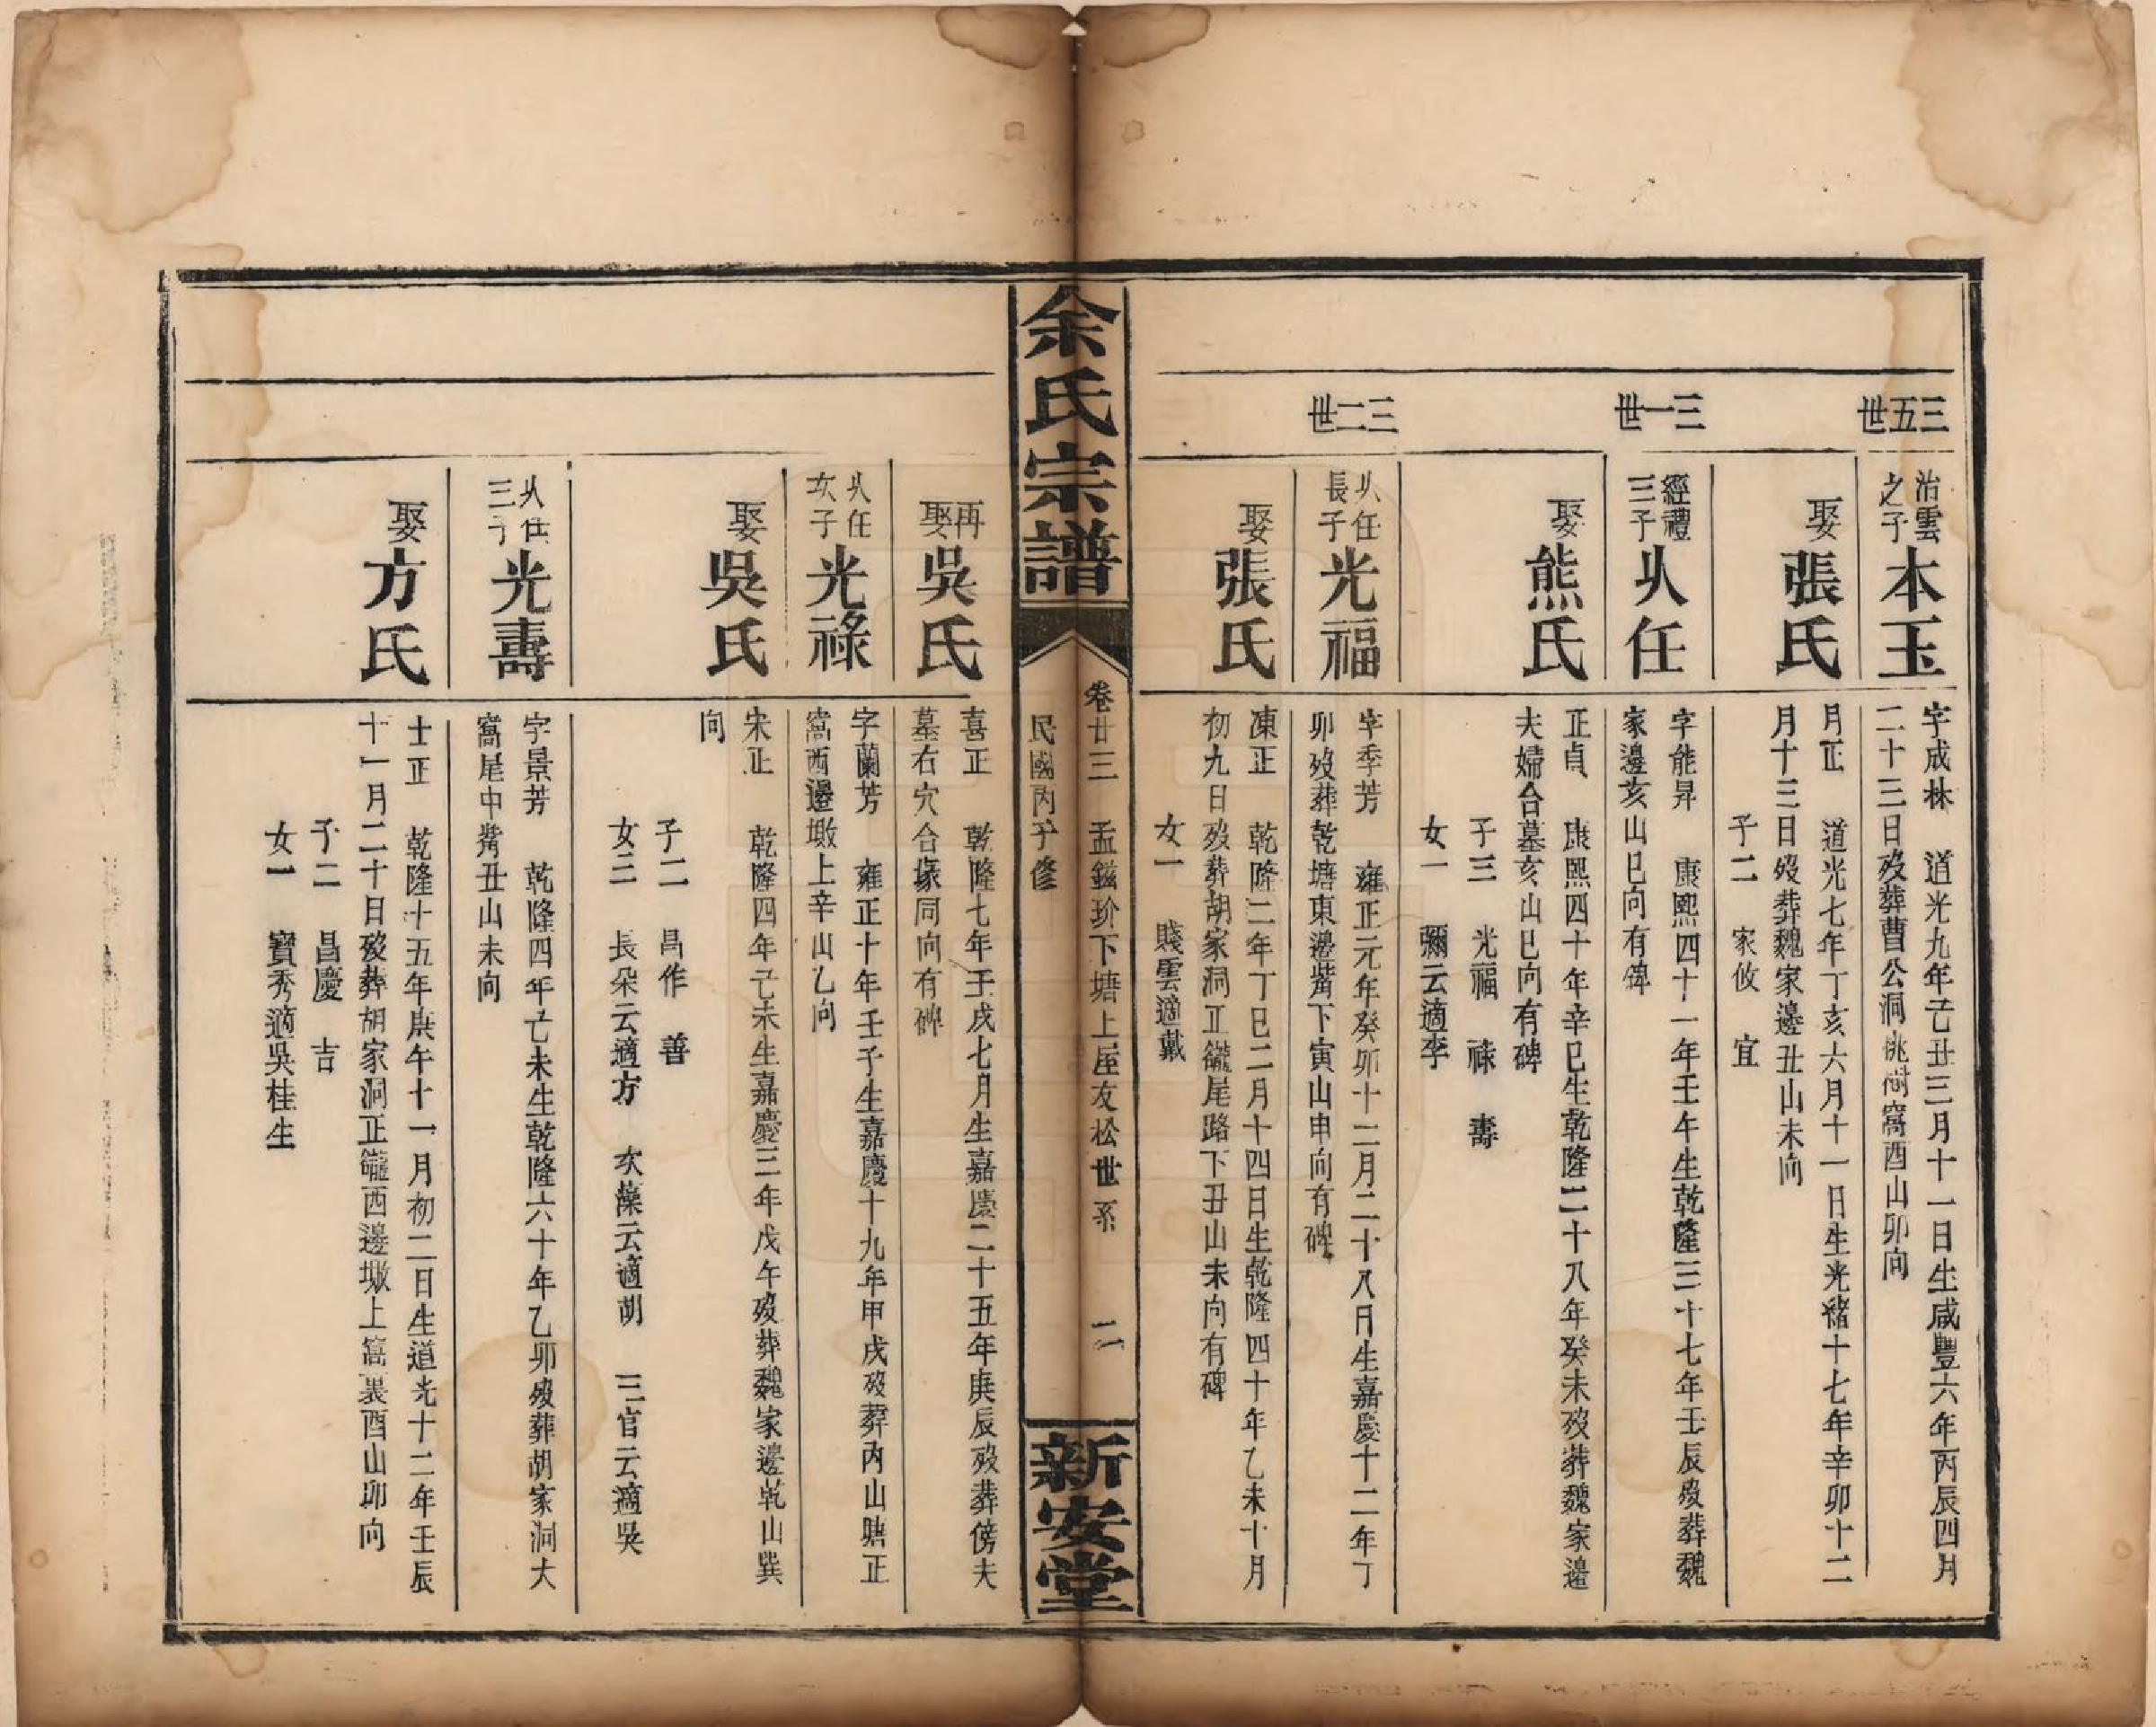 三五世
治雲
之子
本玉
字成林 道光九年己丑三月十一日生咸豐六年丙辰四月
二十三日歿葬曹公洞桃樹窩酉山卯向
娶張氏
月正 道光七年丁亥六月十一日生光緒十七年辛卯十二
月十三日歿葬魏家邊丑山未向
子二 家攸 宜
三一世
經禮
三子
从任
字能昇 康熙四十一年壬午生乾隆三十七年壬辰歿葬魏
家邊亥山巳向有碑
娶熊氏
正貞 康熙四十年辛巳生乾隆二十八年癸未歿葬魏家邊
夫婦合墓亥山巳向有碑
子三 光福 祿 壽
女一 彌云適李
三二世
从任
長子
光福
字季芳 雍正元年癸卯十二月二十八日生嘉慶十二年丁
卯歿葬乾塘東邊嘴下寅山申向有碑
娶張氏
凍正 乾隆二年丁巳二月十四日生乾隆四十年乙未十月
初九日歿葬胡家洞正龍尾路下丑山未向有碑
女一 賤雲適戴
余氏宗譜
卷廿三 孟鎡玠下塘上屋友松世系 二
民國丙子修
新安堂
再娶
吳氏
喜正 乾隆七年壬戌七月生嘉慶二十五年庚辰歿葬傍夫
墓右穴合塚同向有碑
从任
次子
光祿
字蘭芳 雍正十年壬子生嘉慶十九年甲戌歿葬丙山塘正
窩西邊墩上辛山乙向
娶吳氏
宋正 乾隆四年己未生嘉慶三年戊午歿葬魏家邊乾山巽
向
子二 昌作 善
女三 長朵云適方 次藻云適胡 三官云適吳
从任
三子
光壽
字景芳 乾隆四年己未生乾隆六十年乙卯歿葬胡家洞大
窩尾中嘴丑山未向
娶方氏
士正 乾隆十五年庚午十一月初二日生道光十二年壬辰
十一月二十日歿葬胡家洞正龍西邊墩上窩裏酉山卯向
子二 昌慶 吉
女一 寶秀適吳桂生